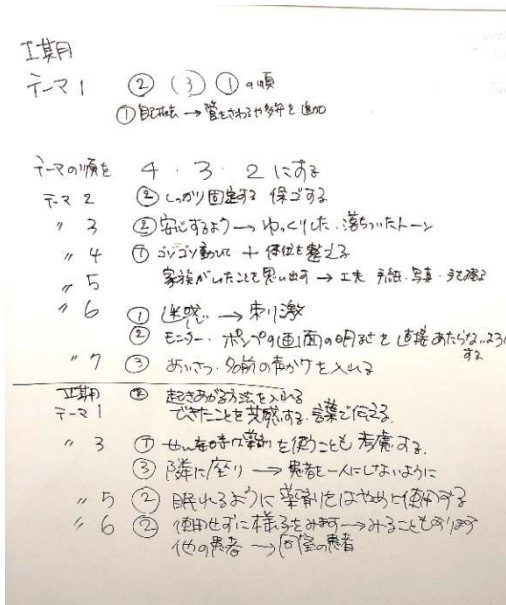 I期
テーマ1 ② (3) ① の順
① → 管をさわるや多弁を追加
テーマの順を 4・3・2にする
テーマ2 ② しっかり固定する 保ゴする
〃 3 ② 安心するよう → ゆっくりした・落ちついたトーン
〃 4 ① ゴソゴソ動いて + 体位を整える
〃 5 家族がしたことを思い出す → 工夫 手紙・写真・
〃 6 ① 迷惑 → 刺激
② モニター・ポンプの画面の明るさを直接あたらないように
する
〃 7 ③ あいさつ・名前の声かけを入れる
II期 ② 起きあがる方法を入れる
テーマ1 できたことを共感する・言葉で伝える
〃 3 ① せん妄時は薬剤を使うことも考慮する。
③ 隣に座り → 患者を一人にしないように
〃 5 ② 眠れるように薬剤をはやめに使用する
〃 6 ② 使用せずに様子をみます → みることもあります
他の患者 → 同室の患者